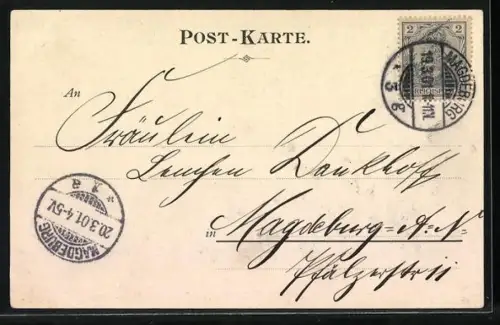 POST-KARTE.
2 2
MAGDEBURG
19.3.01
* 5 g
An
Fräulein
Lenchen Dankhoff
in Magdeburg=A.=N.
Pfälzerstr 11
* 1 a
20.3.01.4-5V.
MAGDEBURG